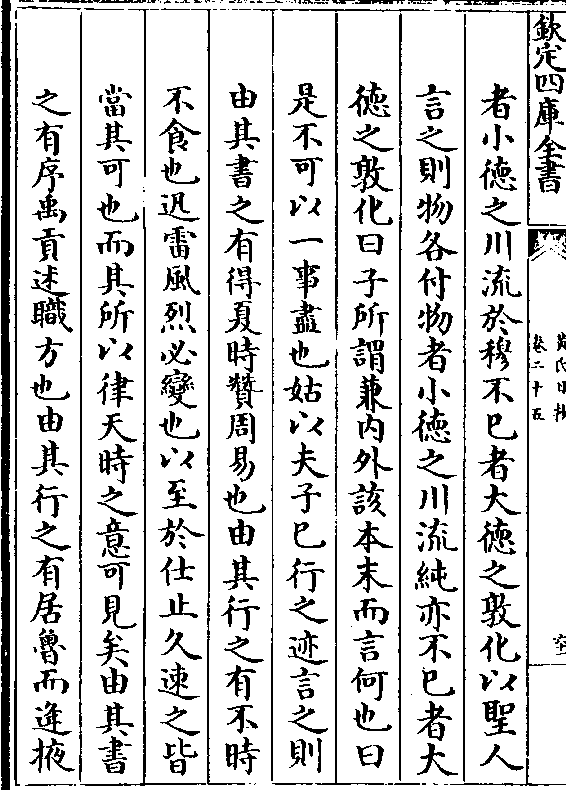 欽定四庫全書
黄氏日抄
卷二十五
者小德之川流於穆不已者大德之敦化以聖人
言之則物各付物者小德之川流純亦不已者大
德之敦化曰子所謂兼内外該本末而言何也曰
是不可以一事盡也姑以夫子已行之迹言之則
由其書之有得夏時贊周易也由其行之有不時
不食也迅雷風烈必變也以至於仕止久速之皆
當其可也而其所以律天時之意可見矣由其書
之有序禹貢述職方也由其行之有居魯而逢掖